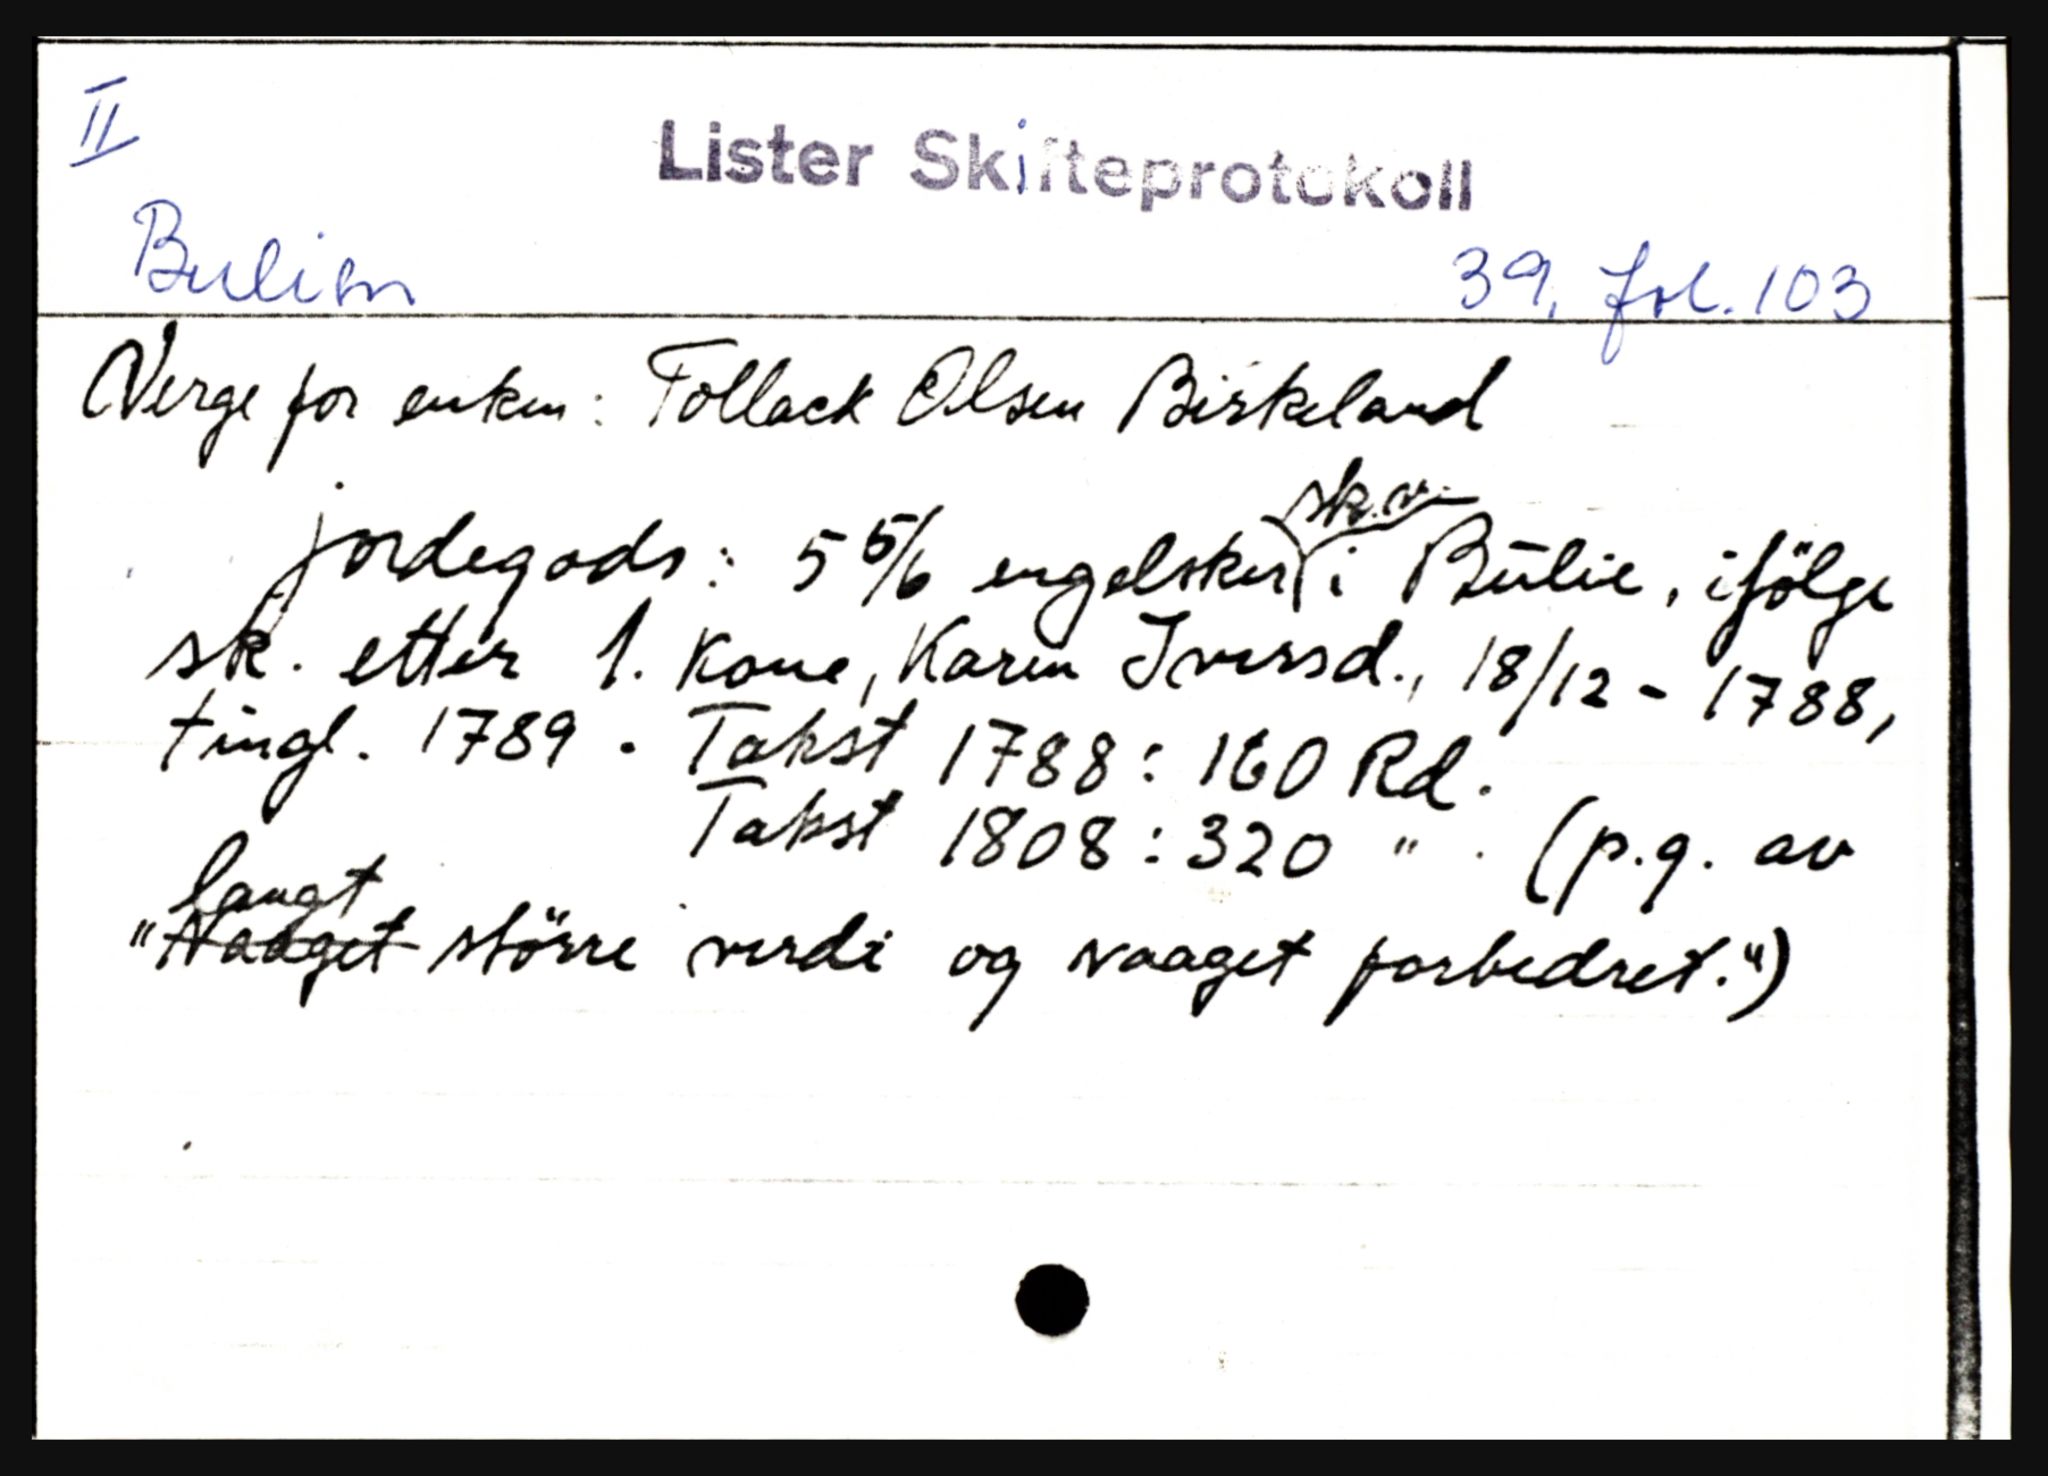 II
Lister Skifteprotokoll
Bulien
39, fol. 103
Verge for enken: Tollack Olsen Birkeland
sk.m.
jordegods: 5 5/6 engelsker i Bŭlie, ifölge
sk. etter 1. kone, Karen Iversd., 18/12 - 1788,
tingl. 1789. Takst 1788: 160 Rd.
Takst 1808: 320 " . (p.g. av
langt
"Naaget större verdi og naaget forbedret.")